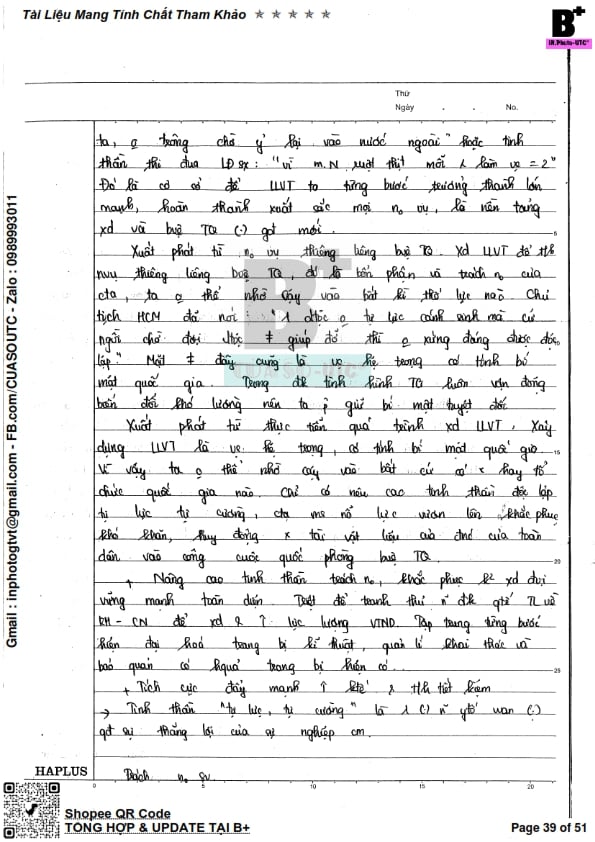 Tài Liệu Mang Tính Chất Tham Khảo ★ ★ ★ ★ ★
B+
IN.Photo-UTC
Thứ
Ngày No.
ta, o trông chờ ỷ lại vào nước ngoài" hoặc tinh
thần thi đua LĐSX: "vì m.N mỗi làm vc = 2"
Đó là cơ sở để LLVT ta từng bước trưởng thành lớn
mạnh, hoàn thành xuất sắc mọi no vụ, là nền tảng
xd và bvệ TQ (.) gđ mới.
Xuất phát từ no vụ thiêng liêng bvệ TQ. Xd LLVT để th
nvụ thiêng liêng bvệ TQ, đó là bổn phận và trách no của
cta, ta o thể nhờ cậy vào bất kì thế lực nào. Chủ
tịch HCM đã nói: "1 dtộc o tự lực cánh sinh mà cứ
ngồi chờ đợi dtộc ≠ giúp đỡ thì o xứng đáng được độc
lập". Mặt ≠ đây cũng là vđ hệ trọng có tính bí
mật quốc gia. Trong đk tình hình TQ luôn vận động
biến đổi khó lường nên ta p giữ bí mật tuyệt đối
Xuất phát từ thực tiễn quá trình xd LLVT. Xây
dựng LLVT là vđ hệ trọng, có tính bí mật quốc gia.
Vì vậy ta o thể nhờ cậy vào bất cứ hay tổ
chức quốc gia nào. Chỉ có nêu cao tinh thần độc lập
tự lực tự cường, cta ms nỗ lực vươn lên khắc phục
khó khăn, huy động tài vật liệu của toàn
dân vào công cuộc quốc phòng bvệ TQ.
+ Nâng cao tinh thần trách no, khắc phục xd đvị
vững mạnh toàn diện. Triệt để tranh thủ đk qtế TL về
KH - CN để xd & ↑ lực lượng VTND. Tập trung từng bước
hiện đại hoá trang bị kĩ thuật, quản lí khai thác và
bảo quản có hquả trang bị hiện có...
+ Tích cực đẩy mạnh ↑ ktế & th tiết kiệm
→ Tinh thần "tự lực, tự cường" là 1 (.) ytố (.)
qđ sự thắng lợi của sự nghiệp cm.
HAPLUS
Trách no sv
5
15
20
25
0 5 10 15 20
B+
CUASO-UTC
Gmail : inphotogtvt@gmail.com - FB.com/CUASOUTC - Zalo : 0989993011
Shopee QR Code
TỔNG HỢP & UPDATE TẠI B+
Page 39 of 51